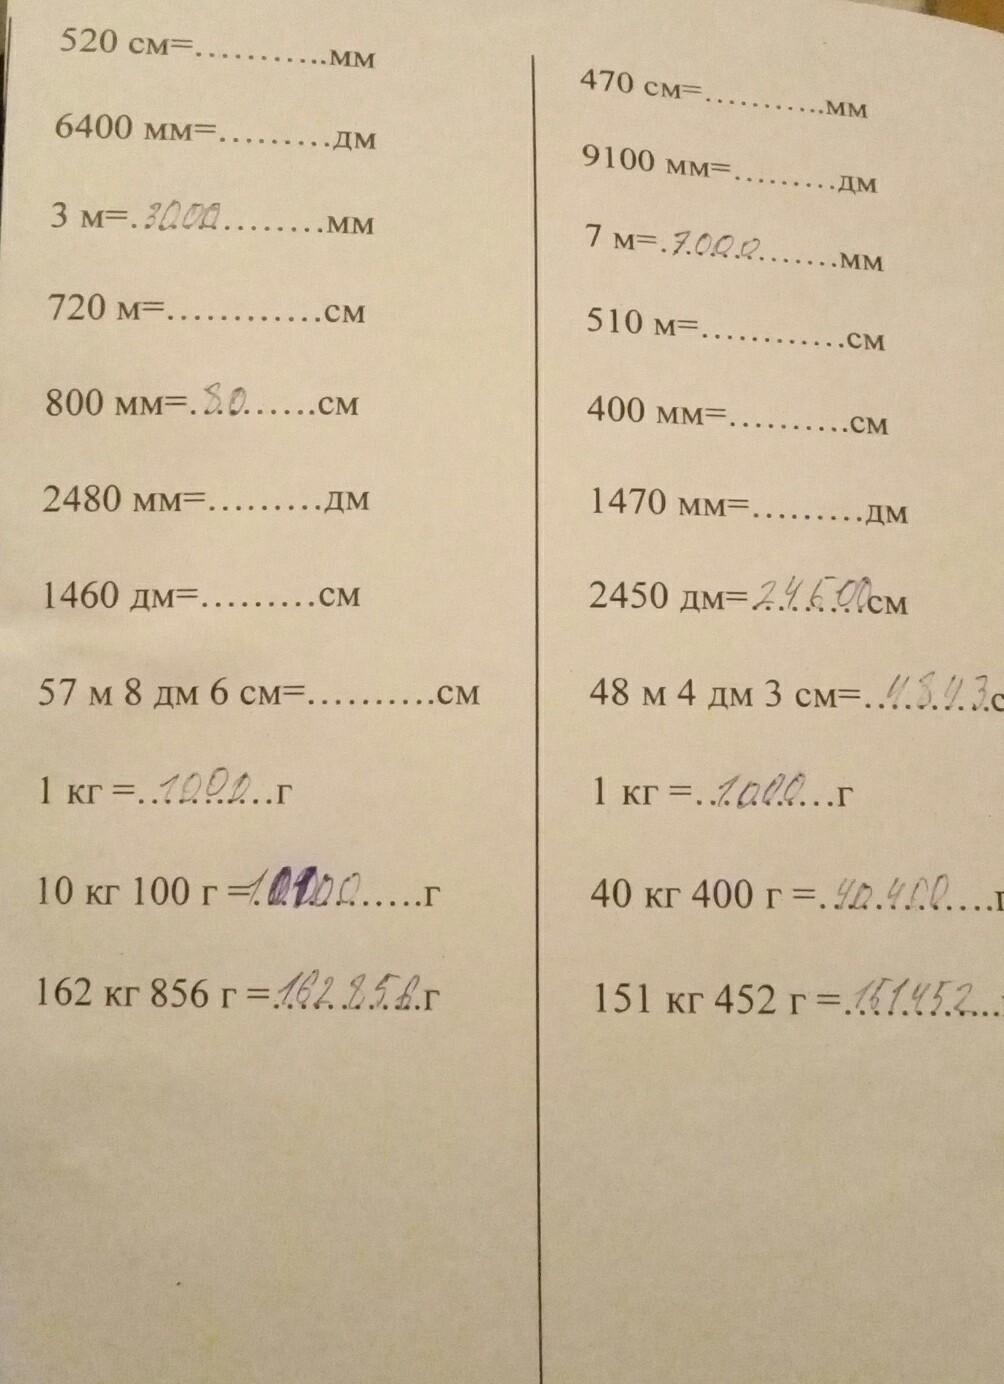 520 см=...........мм
6400 мм=.........дм
3 м=.3000.........мм
720 м=............см
800 мм=.80......см
2480 мм=.........дм
1460 дм=.........см
57 м 8 дм 6 см=..........см
1 кг =..1000...г
10 кг 100 г =10100......г
162 кг 856 г =.162856.г
470 см=...........мм
9100 мм=.........дм
7 м=.7000.......мм
510 м=............см
400 мм=..........см
1470 мм=.........дм
2450 дм=24500см
48 м 4 дм 3 см=..4843.с
1 кг =..1000...г
40 кг 400 г =.40400....г
151 кг 452 г =.151452...